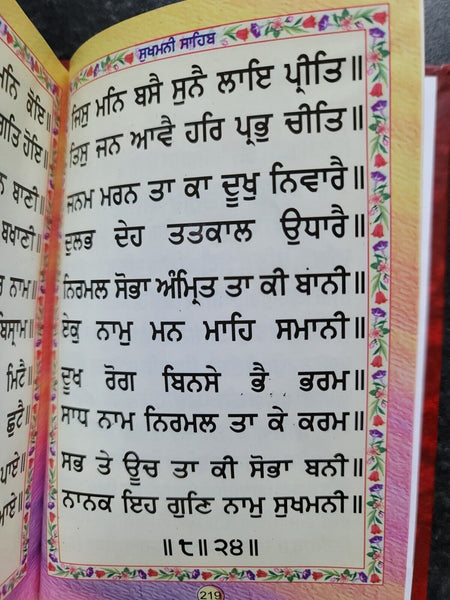 ਮਨਿ ਕੋਇ॥
ਗਤਿ ਹੋਇ॥
ਨ ਬਾਣੀ॥
ਬਖਾਣੀ॥
ਰ ਨਾਮ॥
ਬਿਸ੍ਰਾਮ॥
ਮਿਟੈ॥
ਛੁਟੈ॥
ਪਾਏ॥
ਮਾਏ॥
ਸੁਖਮਨੀ ਸਾਹਿਬ
ਜਿਸੁ ਮਨਿ ਬਸੈ ਸੁਨੈ ਲਾਇ ਪ੍ਰੀਤਿ॥
ਤਿਸੁ ਜਨ ਆਵੈ ਹਰਿ ਪ੍ਰਭੁ ਚੀਤਿ॥
ਜਨਮ ਮਰਨ ਤਾ ਕਾ ਦੂਖੁ ਨਿਵਾਰੈ॥
ਦੁਲਭ ਦੇਹ ਤਤਕਾਲ ਉਧਾਰੈ॥
ਨਿਰਮਲ ਸੋਭਾ ਅੰਮ੍ਰਿਤ ਤਾ ਕੀ ਬਾਨੀ॥
ਏਕੁ ਨਾਮੁ ਮਨ ਮਾਹਿ ਸਮਾਨੀ॥
ਦੂਖ ਰੋਗ ਬਿਨਸੇ ਭੈ ਭਰਮ॥
ਸਾਧ ਨਾਮ ਨਿਰਮਲ ਤਾ ਕੇ ਕਰਮ॥
ਸਭ ਤੇ ਊਚ ਤਾ ਕੀ ਸੋਭਾ ਬਨੀ॥
ਨਾਨਕ ਇਹ ਗੁਣਿ ਨਾਮੁ ਸੁਖਮਨੀ॥
॥੮॥੨੪॥
219